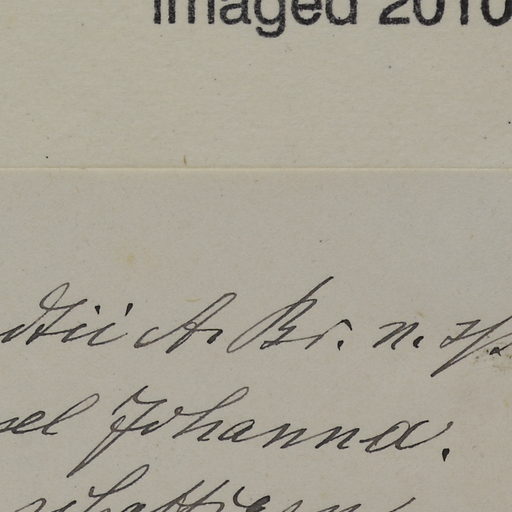 Imaged 2010
dtii A. Br. n. sp.
sel Johanna.